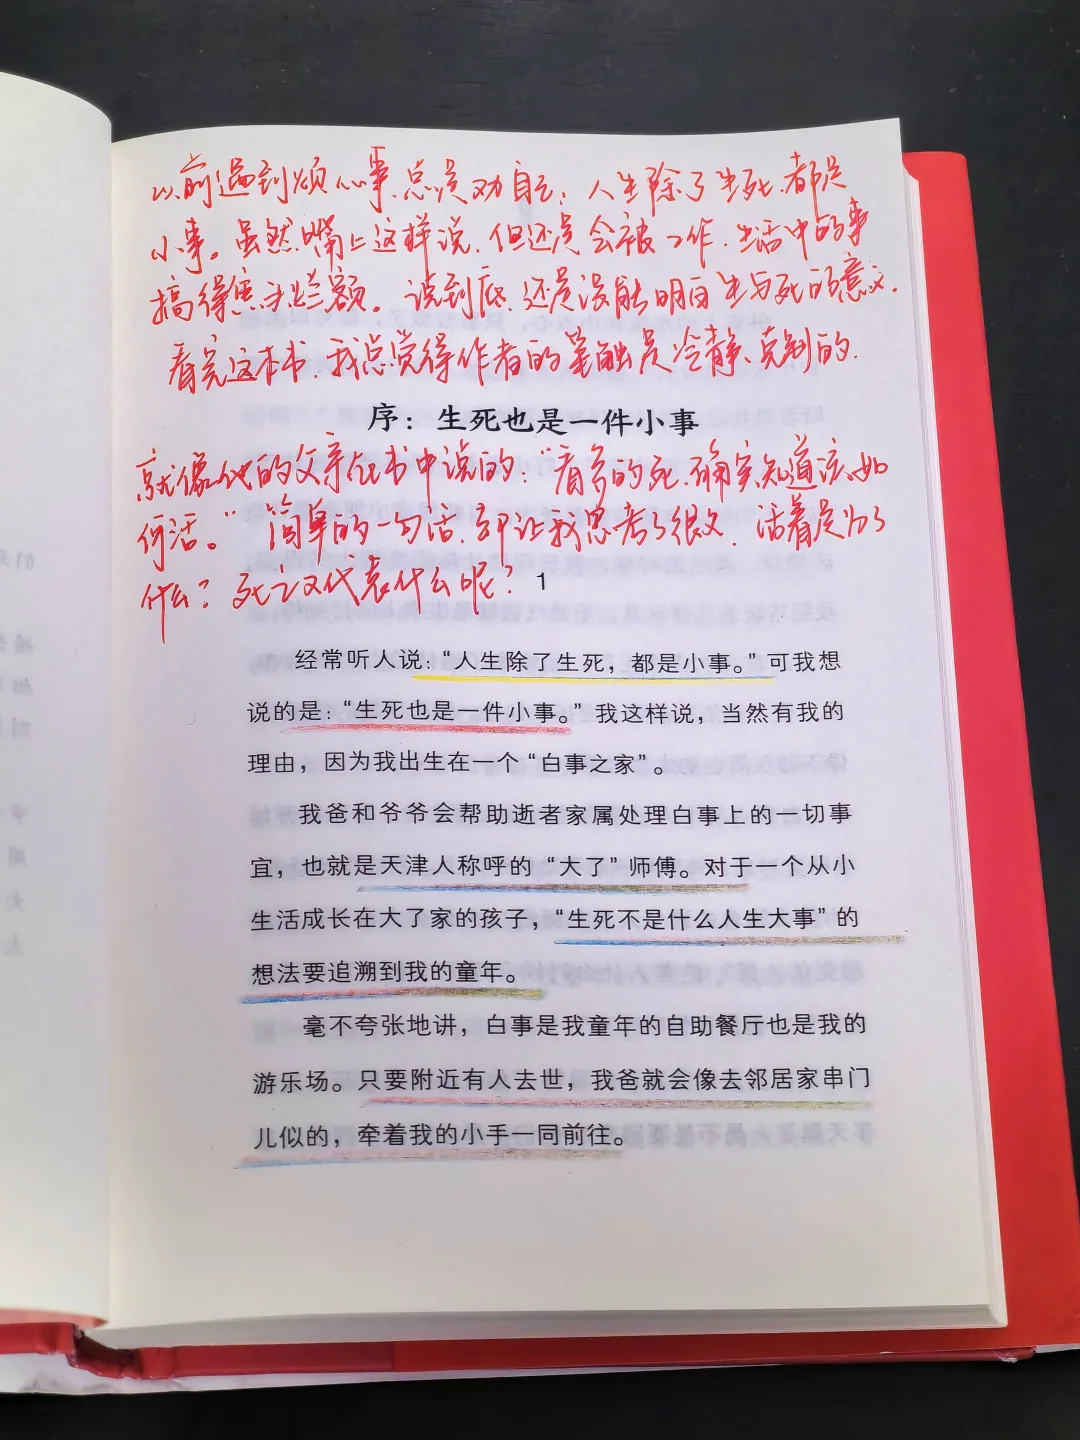 以前遇到烦心事，总是劝自己，人生除了生死，都是
小事。虽然嘴上这样说，但还是会被工作、生活中的事
搞得焦头烂额。说到底，还是没能明白生与死的意义。
看完这本书，我总觉得作者的笔触是冷静、克制的，
序：生死也是一件小事
就像他的父亲在书中说的：看多的死，确实知道该如
何活。”简单的一句话，却让我思考了很久，活着是为了
什么？死亡又代表什么呢？
1
经常听人说：“人生除了生死，都是小事。”可我想
说的是：“生死也是一件小事。”我这样说，当然有我的
理由，因为我出生在一个“白事之家”。
我爸和爷爷会帮助逝者家属处理白事上的一切事
宜，也就是天津人称呼的“大了”师傅。对于一个从小
生活成长在大了家的孩子，“生死不是什么人生大事”的
想法要追溯到我的童年。
毫不夸张地讲，白事是我童年的自助餐厅也是我的
游乐场。只要附近有人去世，我爸就会像去邻居家串门
儿似的，牵着我的小手一同前往。